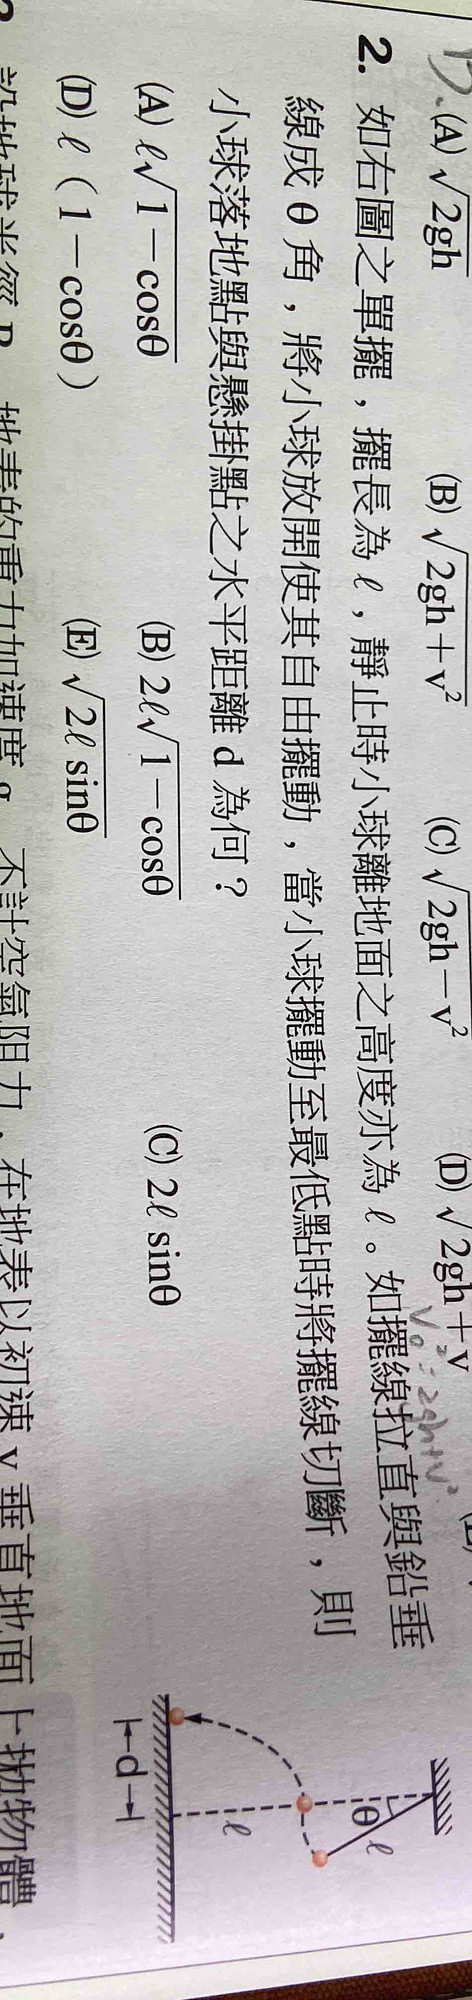 (A) √2gh (B) √2gh+v² (C) √2gh−v² (D) √2gh+v
V₀²=2gh+v²
2. 如右圖之單擺，擺長為 ℓ，靜止時小球離地面之高度亦為 ℓ。如擺線拉直與鉛垂
線成 θ 角，將小球放開使其自由擺動，當小球擺動至最低點時將擺線切斷，則
小球落地點與懸掛點之水平距離 d 為何？
(A) ℓ√1−cosθ (B) 2ℓ√1−cosθ (C) 2ℓ sinθ
(D) ℓ（1−cosθ） (E) √2ℓ sinθ
θ
ℓ
ℓ
d
設地球半徑 R，地表的重力加速度 g，不計空氣阻力，在地表以初速 v 垂直地面上拋物體，